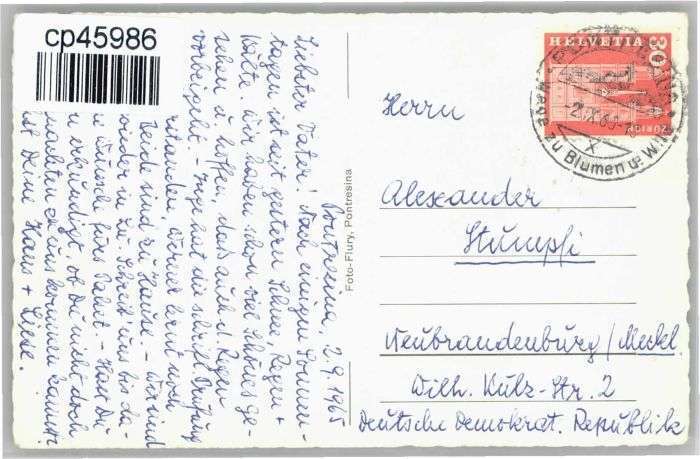 cp45986
Pontresina, 2.9.1965
Liebster Vater! Nach einigen Sonnen-
tagen ist seit gestern Schnee, Regen +
Kälte. Wir haben schon viel Schönes ge-
sehen u. hoffen, dass auch d. Regen
vorbeigeht. - Inge hat die schriftl. Prüfung
hinter, Werner lernt noch
beide sind zu Hause. - Wir sind
wieder in Lu. Schreib' uns bis da-
u. Wünsche fürs Paket. - Hast Du
u. erkundigt, ob Du nicht doch
zu uns kommen kannst?
ist Deine Hans + Liese.
Foto-Flury, Pontresina
HELVETIA
30
ZÜRICH
-2.IX.65-
X
zu Blumen u. Wi
Herrn
Alexander
Stumpfi
Neubrandenburg/Meckl.
Wilh. Külz-Str. 2
Deutsche Demokrat. Republik